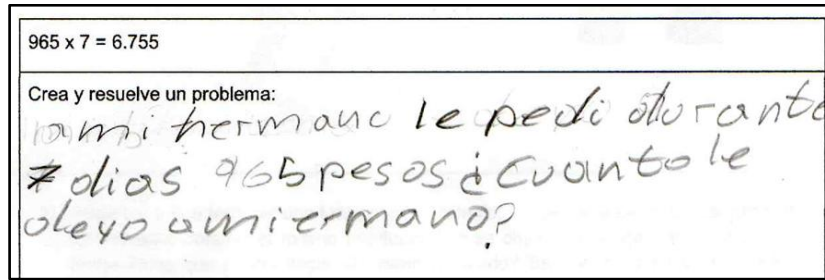 965 x 7 = 6.755
Crea y resuelve un problema:
a mi hermano le pedi durante
7 dias 965 pesos ¿Cuanto le
devo a mi ermano?